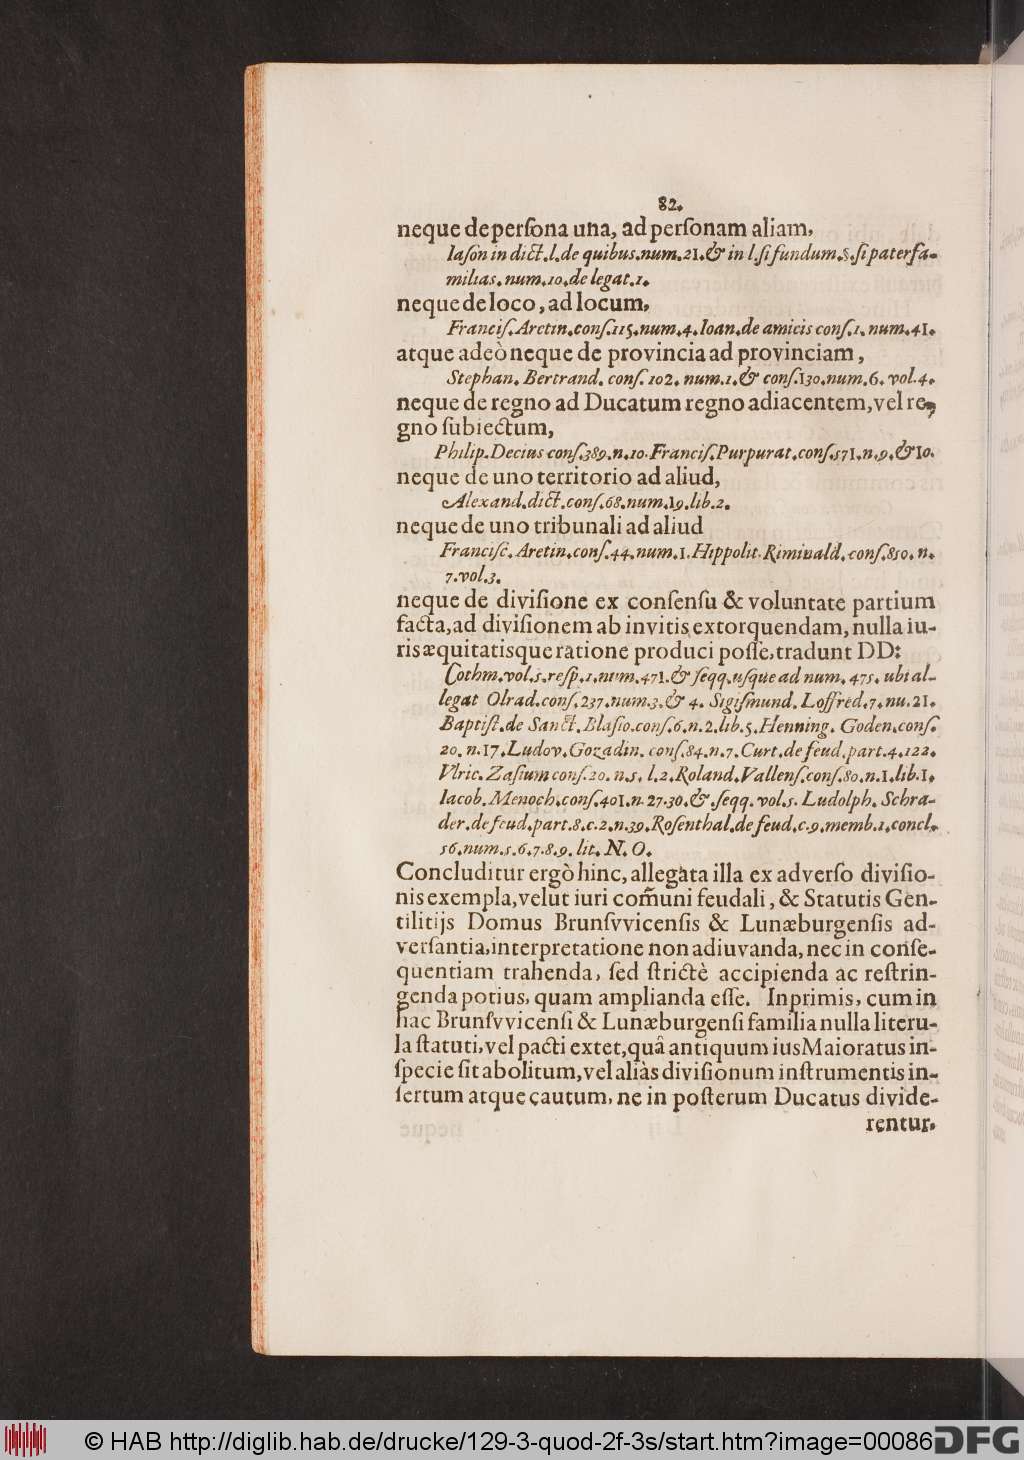 82.
neque de persona una, ad personam aliam,
Iason in dict. l. de quibus. num. 21. & in l. si fundum. §. si paterfa-
milias. num. 10. de legat. 1.
neque de loco, ad locum,
Francis. Aretin. cons. 115. num. 4. Ioan. de amicis cons. 1. num. 41.
atque adeò neque de provincia ad provinciam,
Stephan. Bertrand. cons. 102. num. 1. & cons. 130. num. 6. vol. 4.
neque de regno ad Ducatum regno adiacentem, vel re-
gno subiectum,
Philip. Decius cons. 389. n. 10. Francis. Purpurat. cons. 571. n. 9. & 10.
neque de uno territorio ad aliud,
Alexand. dict. cons. 68. num. 19. lib. 2.
neque de uno tribunali ad aliud
Francisc. Aretin. cons. 44. num. 1. Hippolit. Riminald. cons. 850. n.
7. vol. 3.
neque de divisione ex consensu & voluntate partium
facta, ad divisionem ab invitis extorquendam, nulla iu-
ris æquitatisque ratione produci posse, tradunt DD:
Cothm. vol. 5. resp. 1. num. 471. & seqq. usque ad num. 475. ubi al-
legat Olrad. cons. 237. num. 3. & 4. Sigismund. Loffred. 7. nu. 21.
Baptist. de Sanct. Blasio. cons. 6. n. 2. lib. 5. Henning. Goden. cons.
20. n. 17. Ludov. Gozadin. cons. 84. n. 7. Curt. de feud. part. 4. 122.
Vlric. Zasium cons. 20. n. 5. l. 2. Roland. Vallens. cons. 80. n. 1. lib. 1.
Iacob. Menoch. cons. 401. n. 27. 30. & seqq. vol. 5. Ludolph. Schra-
der. de feud. part. 8. c. 2. n. 39. Rosenthal. de feud. c. 9. memb. 1. concl.
56. num. 5. 6. 7. 8. 9. lit. N. O.
Concluditur ergò hinc, allegata illa ex adverso divisio-
nis exempla, velut iuri com̃uni feudali, & Statutis Gen-
tilitijs Domus Brunsvvicensis & Lunæburgensis ad-
versantia, interpretatione non adiuvanda, nec in conse-
quentiam trahenda, sed strictè accipienda ac restrin-
genda potius, quam amplianda esse. Inprimis, cum in
hac Brunsvvicensi & Lunæburgensi familia nulla literu-
la statuti, vel pacti extet, quâ antiquum ius Maioratus in-
specie sit abolitum, vel aliàs divisionum instrumentis in-
sertum atque cautum, ne in posterum Ducatus divide-
rentur.
© HAB http://diglib.hab.de/drucke/129-3-quod-2f-3s/start.htm?image=00086
DFG